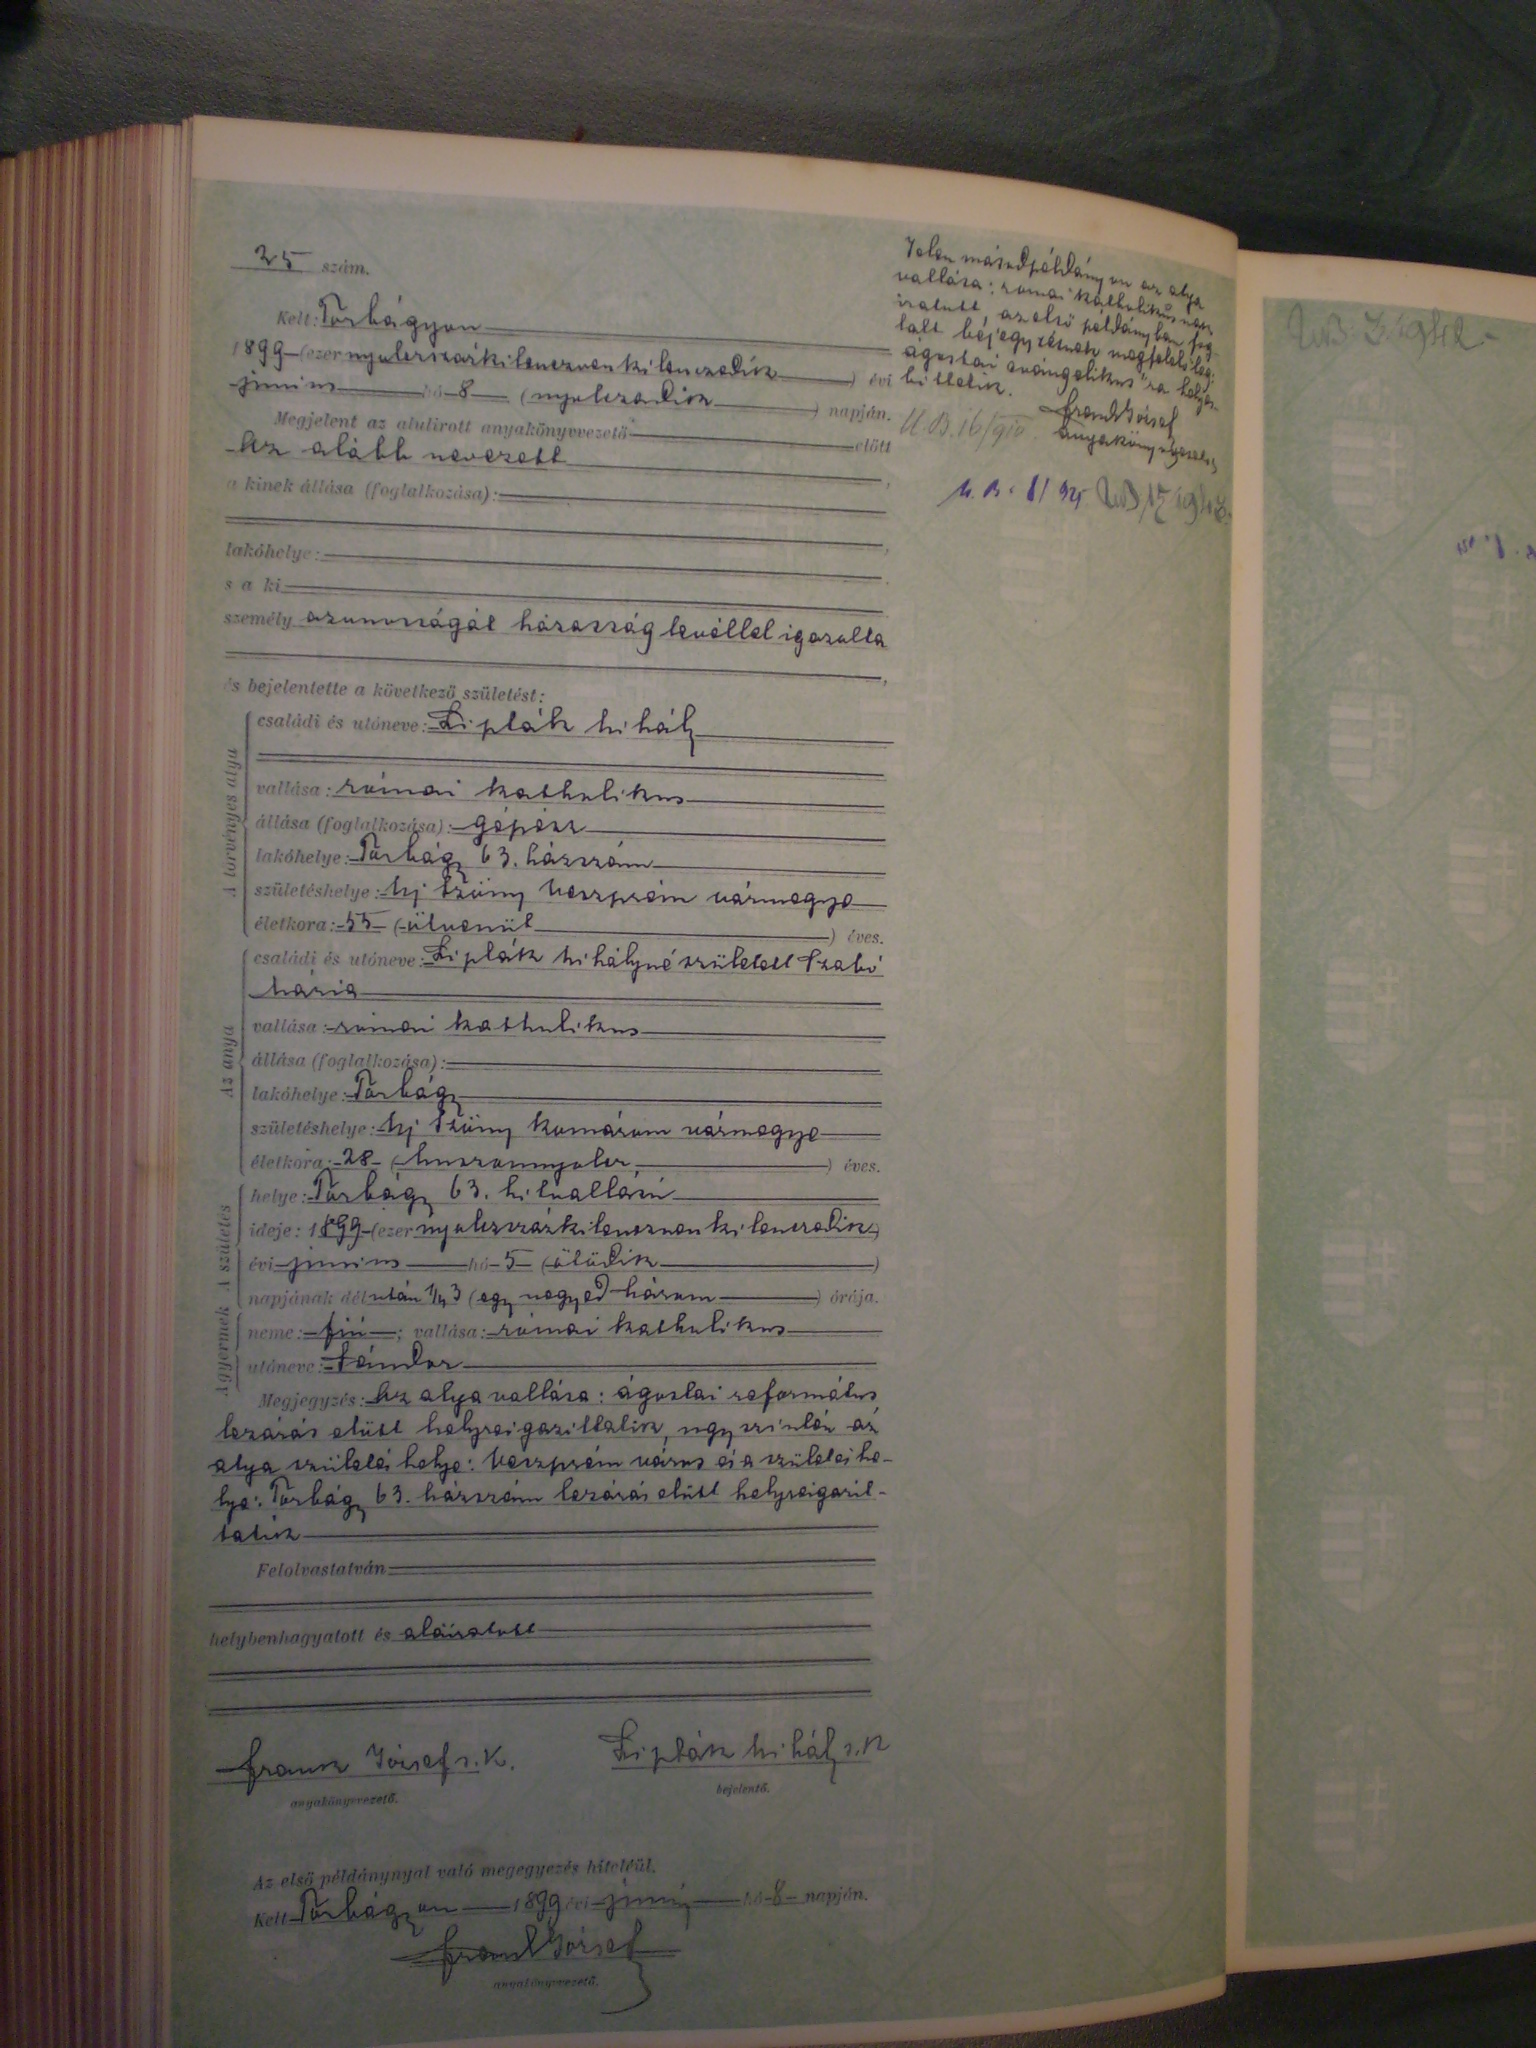 25 szám.
Kelt: Torbágyon
1899 (ezer nyolcszázkilenczvenkilenczedik) évi
június hó 8 (nyolczadik) napján.
Megjelent az alulirott anyakönyvvezető előtt
Az alább nevezett
a kinek állása (foglalkozása):
lakóhelye:
s a ki
személy azonosságát házasság levéllel igazolta
és bejelentette a következő születést:
A törvényes atya
családi és utóneve: Liplák Mihály
vallása: római katholikus
állása (foglalkozása): gépész
lakóhelye: Torbágy 63. házszám
születéshelye: Uj Szőny Veszprém vármegye
életkora: 55 (ötvenöt) éves.
Az anya
családi és utóneve: Liplák Mihályné született Szabó
Mária
vallása: római katholikus
állása (foglalkozása):
lakóhelye: Torbágy
születéshelye: Uj Szőny Komárom vármegye
életkora: 28 (huszonnyolcz) éves.
A születés
helye: Torbágy 63.
ideje: 1899 (ezer nyolczszázkilencznenkilenczedik)
évi június hó 5 (ötödik)
napjának délután 1/4 3 (egy negyed három) órája.
A gyermek
neme: fiú; vallása: római katholikus
utóneve: Sándor
Megjegyzés: Az atya vallása: ágostai református
lezárás előtt helyreigazittatik, ugy szintén az
atya születési helye: Veszprém város és a születési he-
lye: Torbágy 63. házszám lezárás előtt helyreigazit-
tatik
Felolvastatván
helybenhagyatott és aláiratott
Frank József s. k.
anyakönyvvezető.
Liplák Mihály s. k.
bejelentő.
Az első példánynyal való megegyezés hiteléül.
Kelt Torbágyon 1899 évi júni hó 8 napján.
Frank József
anyakönyvvezető.
Jelen másodpéldányon az atya
vallása: "római katholikus"nak
iratott, az első példányban fog-
lalt bejegyzésnek megfelelőleg
ágostai evángelikus"ra helyes-
bittetik.
Frank József
anyakönyvvezető
U.B. 16/910